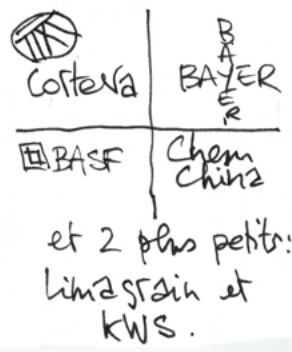 Corteva
BAYER
BAYER
BASF
Chem
China
et 2 plus petits:
Limagrain et
KWS.